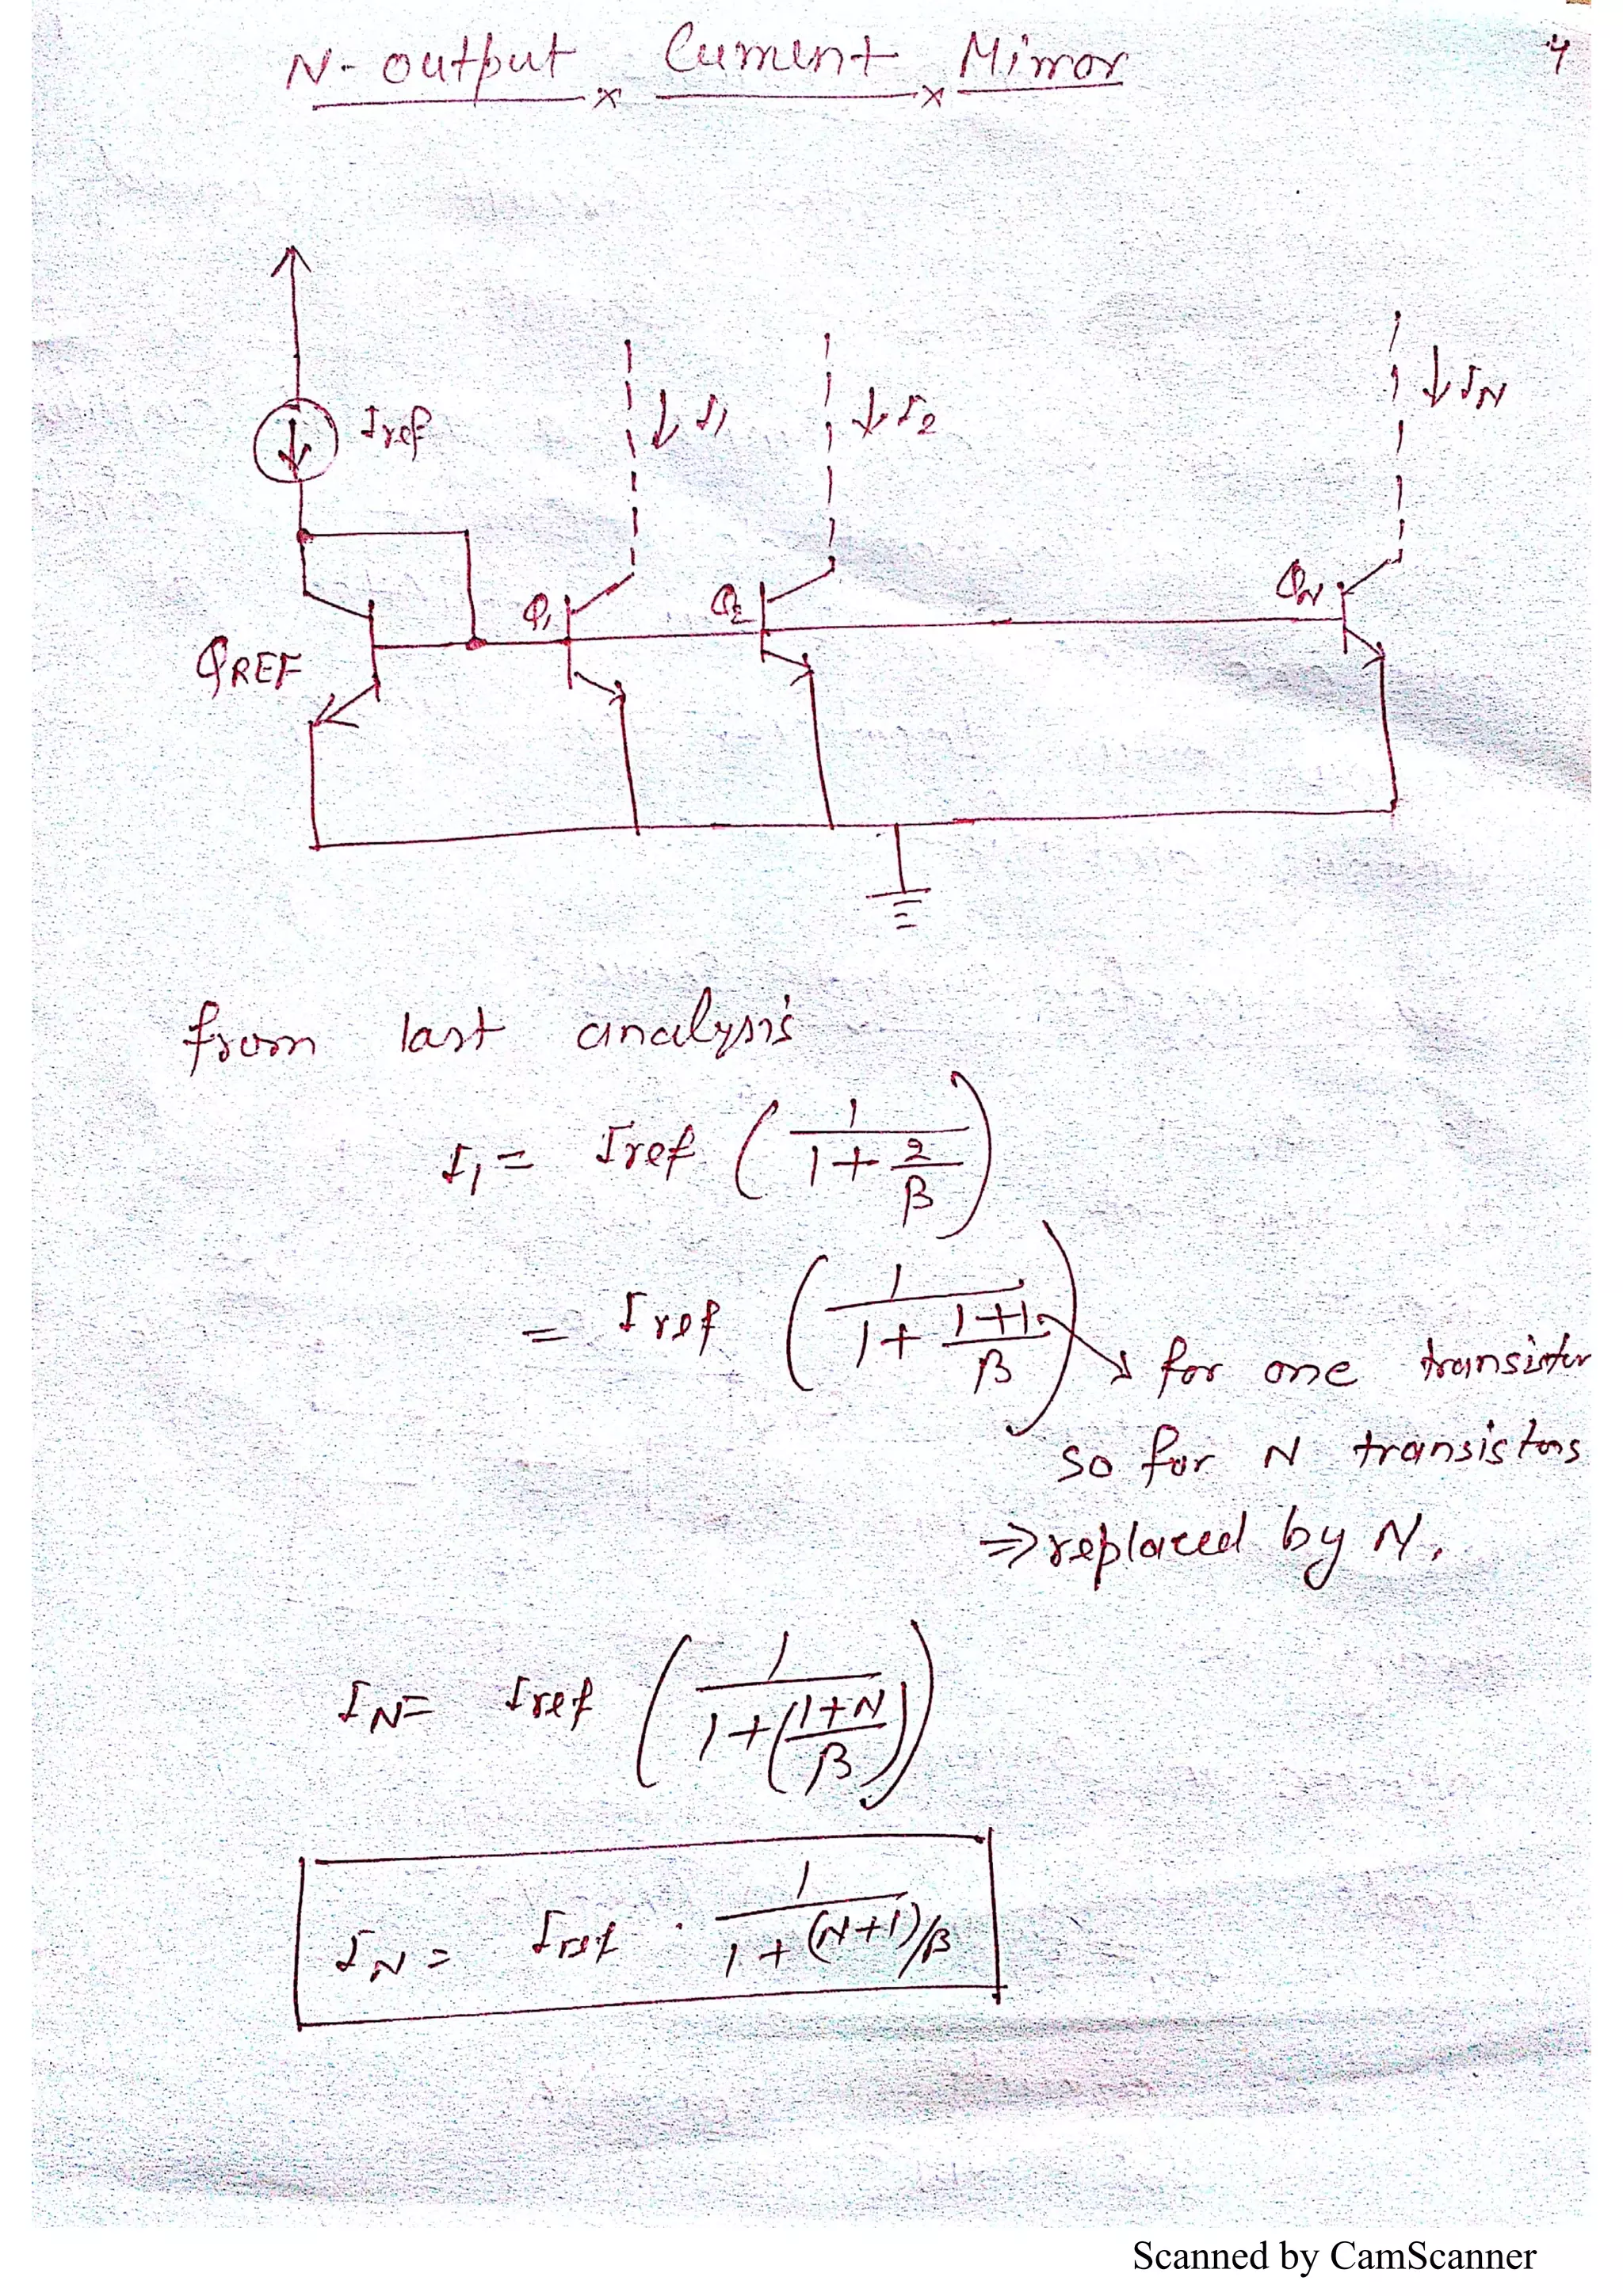 N-output Current Mirror
4
Iref
I1
I2
IN
QREF
Q1
Q2
QN
from last analysis
I1 = Iref (1/(1 + 2/β))
= Iref (1/(1 + (1+1)/β)) → for one transistor
so for N transistors
⇒ replaced by N.
IN = Iref (1/(1 + ((1+N)/β)))
IN = Iref · 1/(1 + (N+1)/β)
Scanned by CamScanner